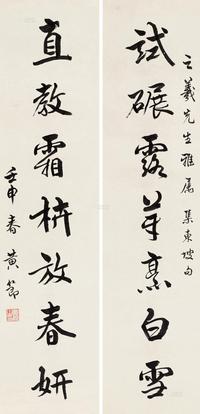 之羲先生雅屬 集東坡句
試碾露芽烹白雪
直教霜枿放春妍
壬申春 黃節